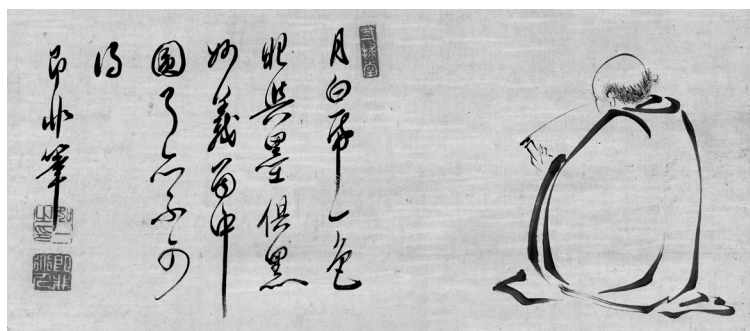 月白帋一色
眼與墨俱黒
妙義箇中
圓了不可
得
即非筆